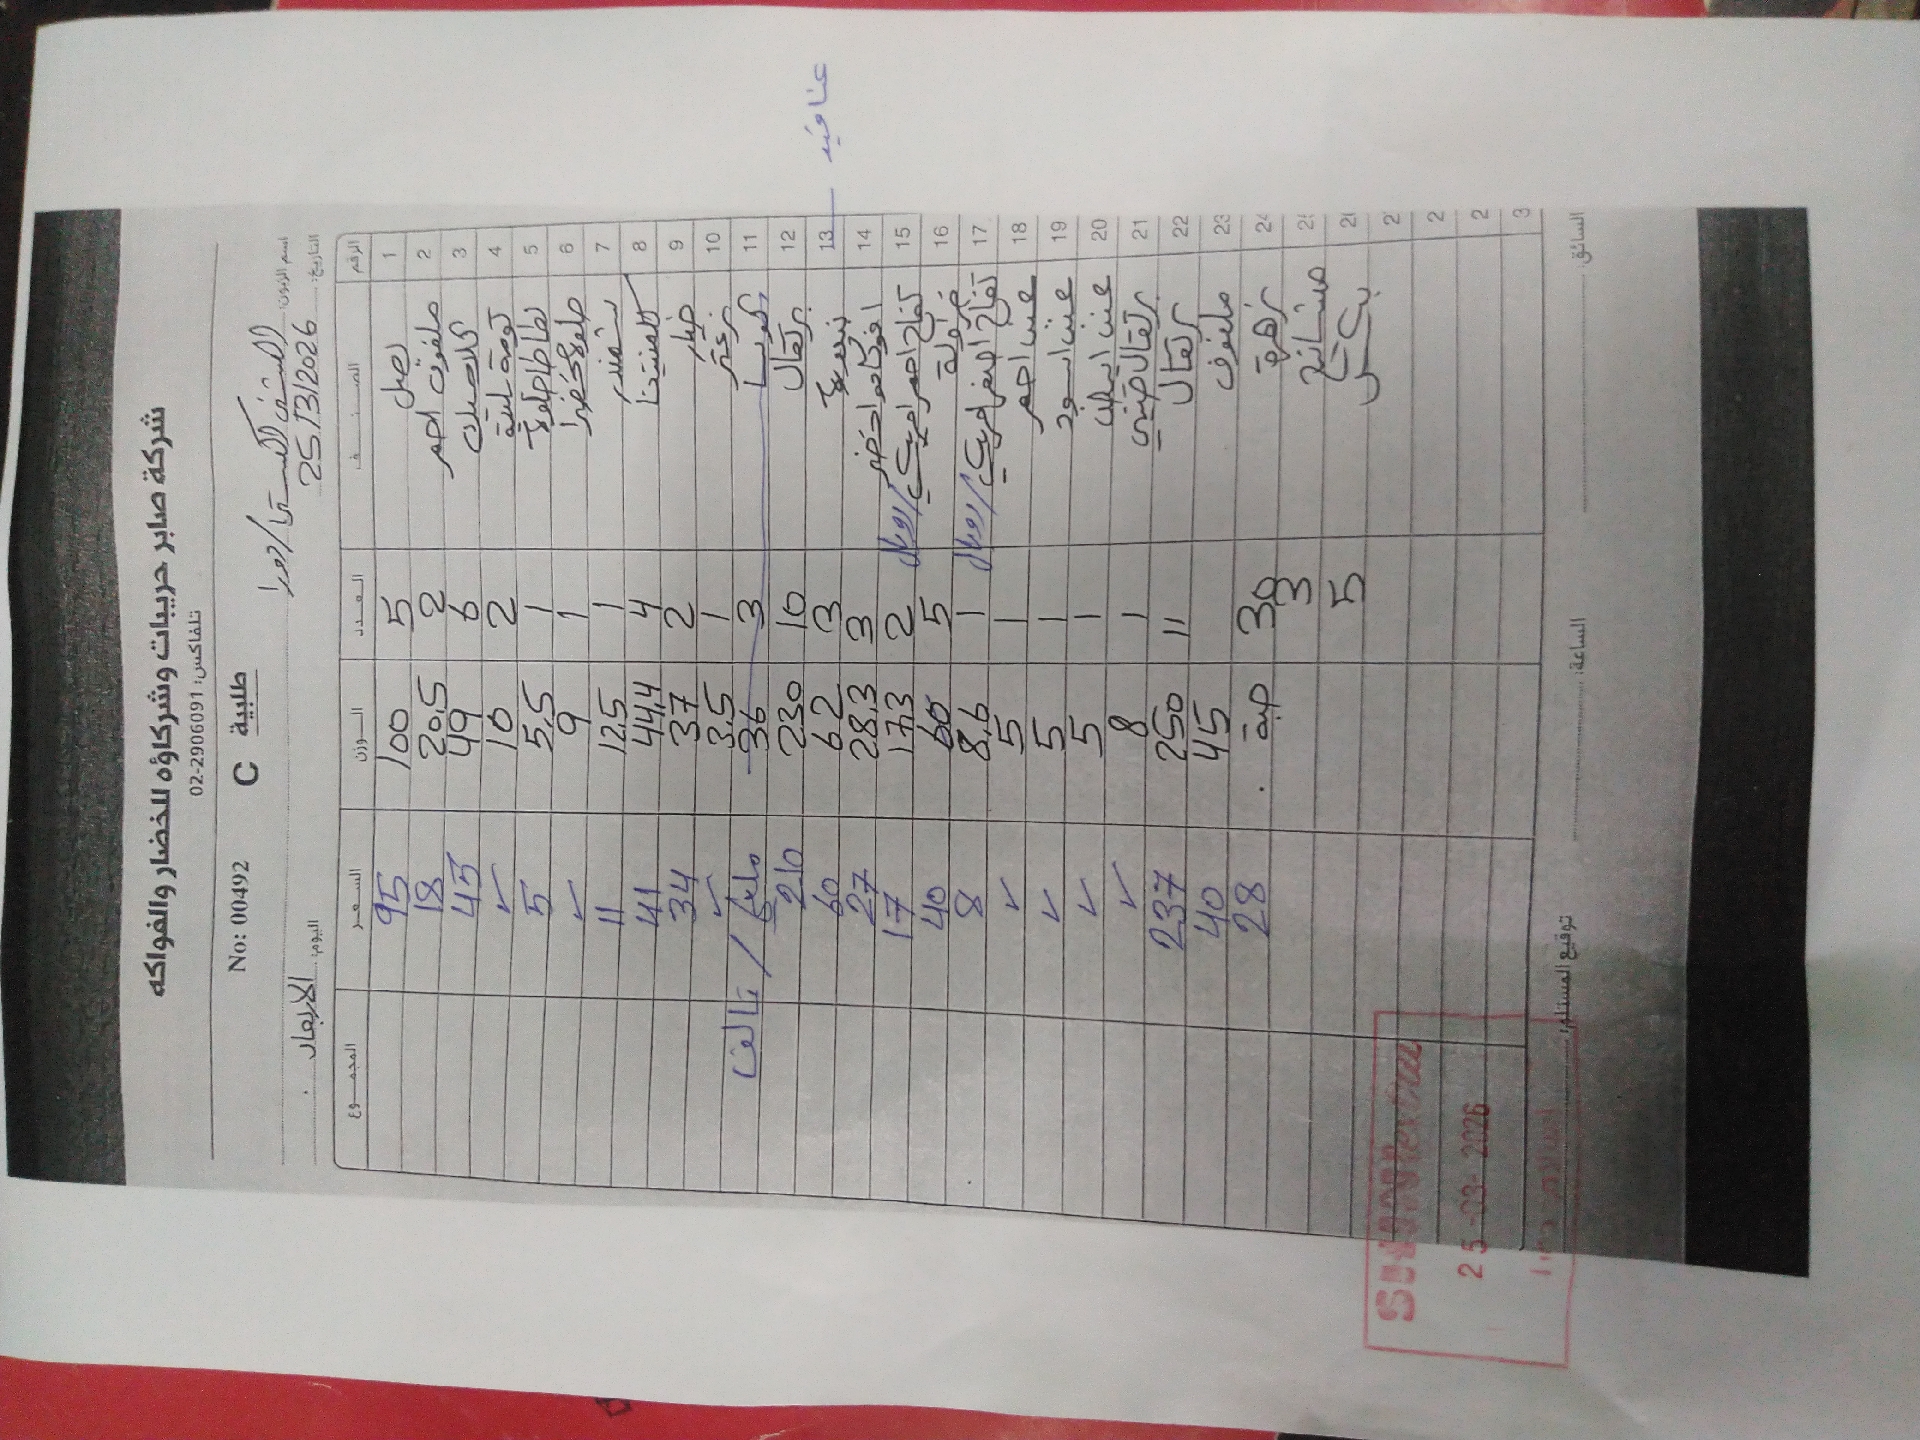 شركة صابر حريبات وشركاؤه للخضار والفواكه
تلفاكس: 02-2906091
No: 00492 C طلبية
اسم الزبون:
اليوم: الاربعاء التاريخ: 25/3/2026
الرقم الصنف العدد الوزن السعر المجموع
1 بصل 5 100 95
2 ملفوف احمر 2 20.5 18
3 49 45
4 2 10 ✓
5 بطاطا حلوة 1 5,5 5
6 1 9 ✓
7 شمندر 1 12,5 11
8 4 44,4 41
9 خيار 2 37 34
10 زعتر 1 3,5 ✓
11 3 36
12 برتقال 10 230 210
13 3 62 60
14 افوكادو اخضر 3 28,3 27
15 تفاح احمر 2 17,3 17
16 5 40
17 تفاح اصفر 1 8,6 8
18 عنب احمر 1 5 ✓
19 عنب اسود 1 5 ✓
20 عنب ابيض 1 5 ✓
21 برتقال صيني 1 8 ✓
22 برتقال 11 250 237
23 ملفوف 45 40
24 زهرة 30 حبة 28
3
5
السائق: الساعة: توقيع المستلم:
25-03-2026